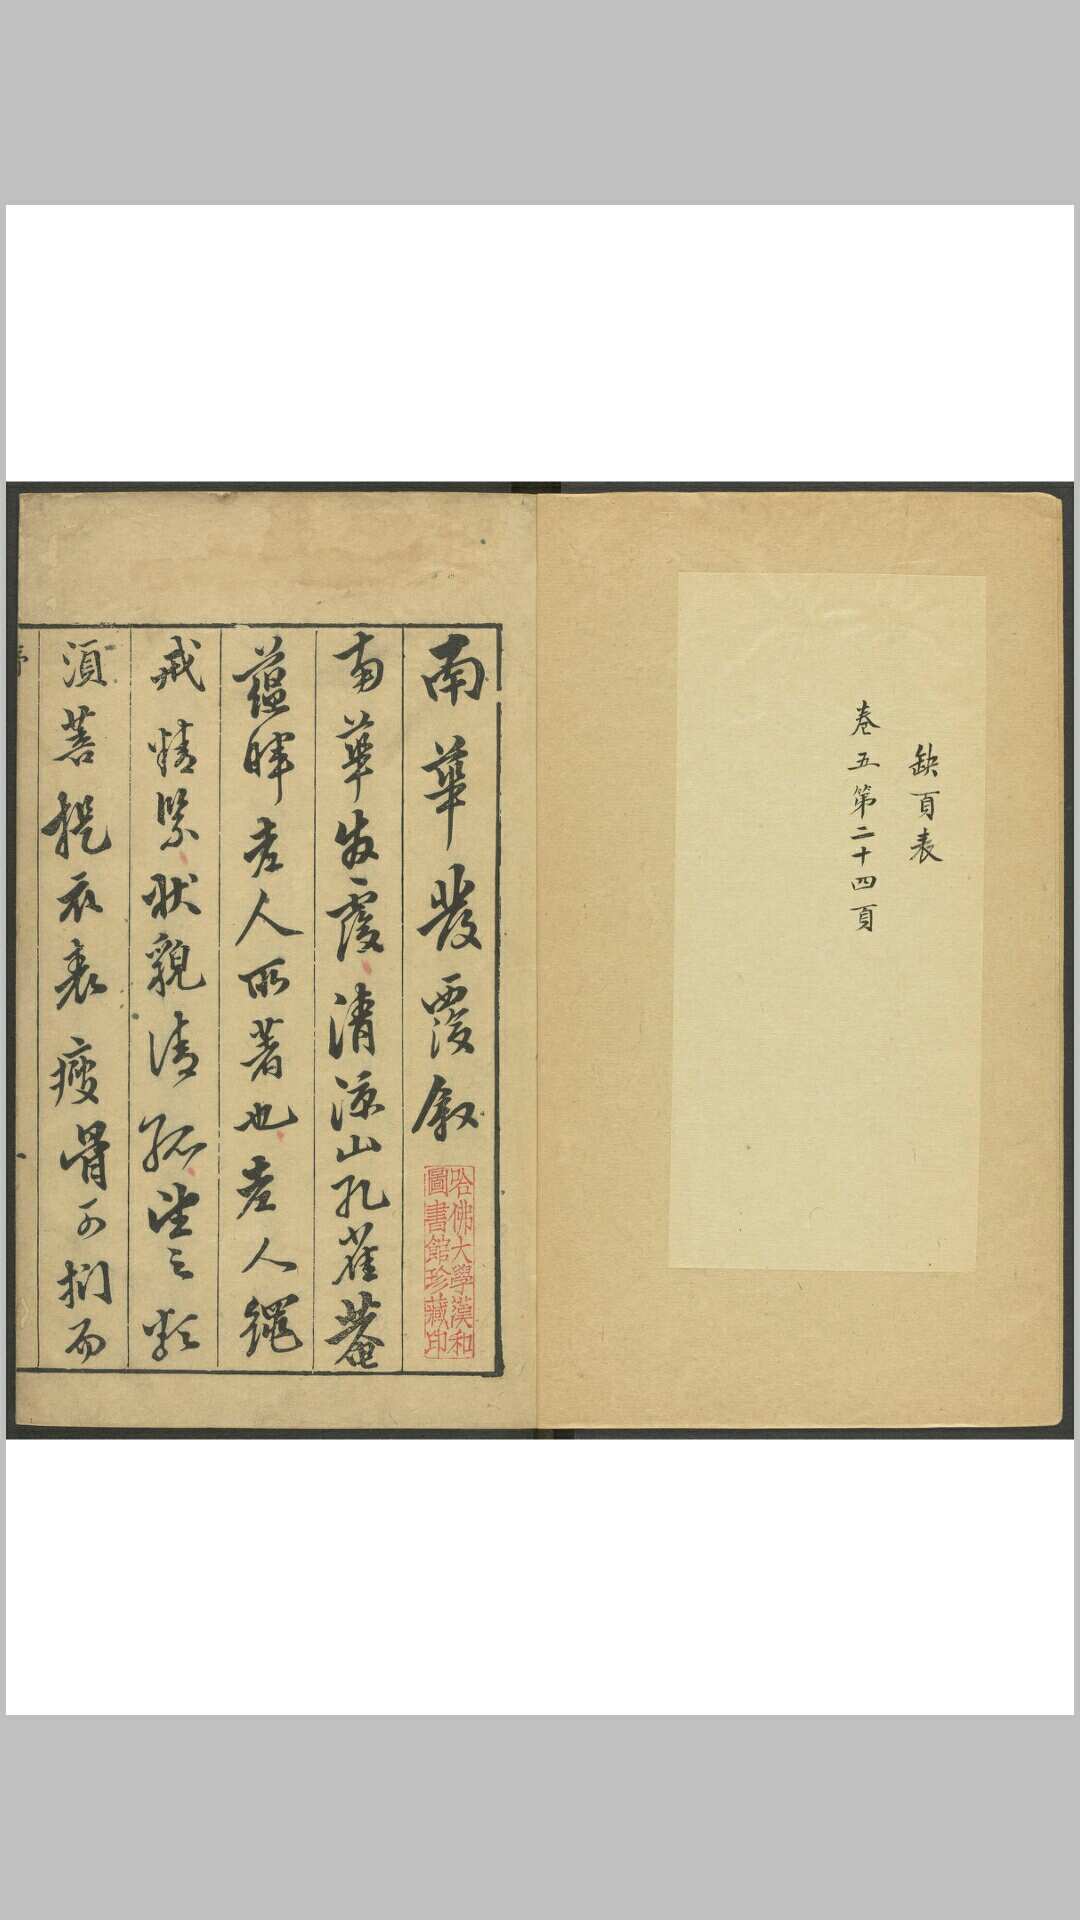 缺頁表
卷五第二十四頁
南華發覆叙
哈佛大學漢和
圖書館珍藏印
南華發覆清涼山孔雀菴
蘊暉老人所著也老人繩
戒精緊狀貌清孤望之類
須菩提衣裹瘦骨可捫而
序
一